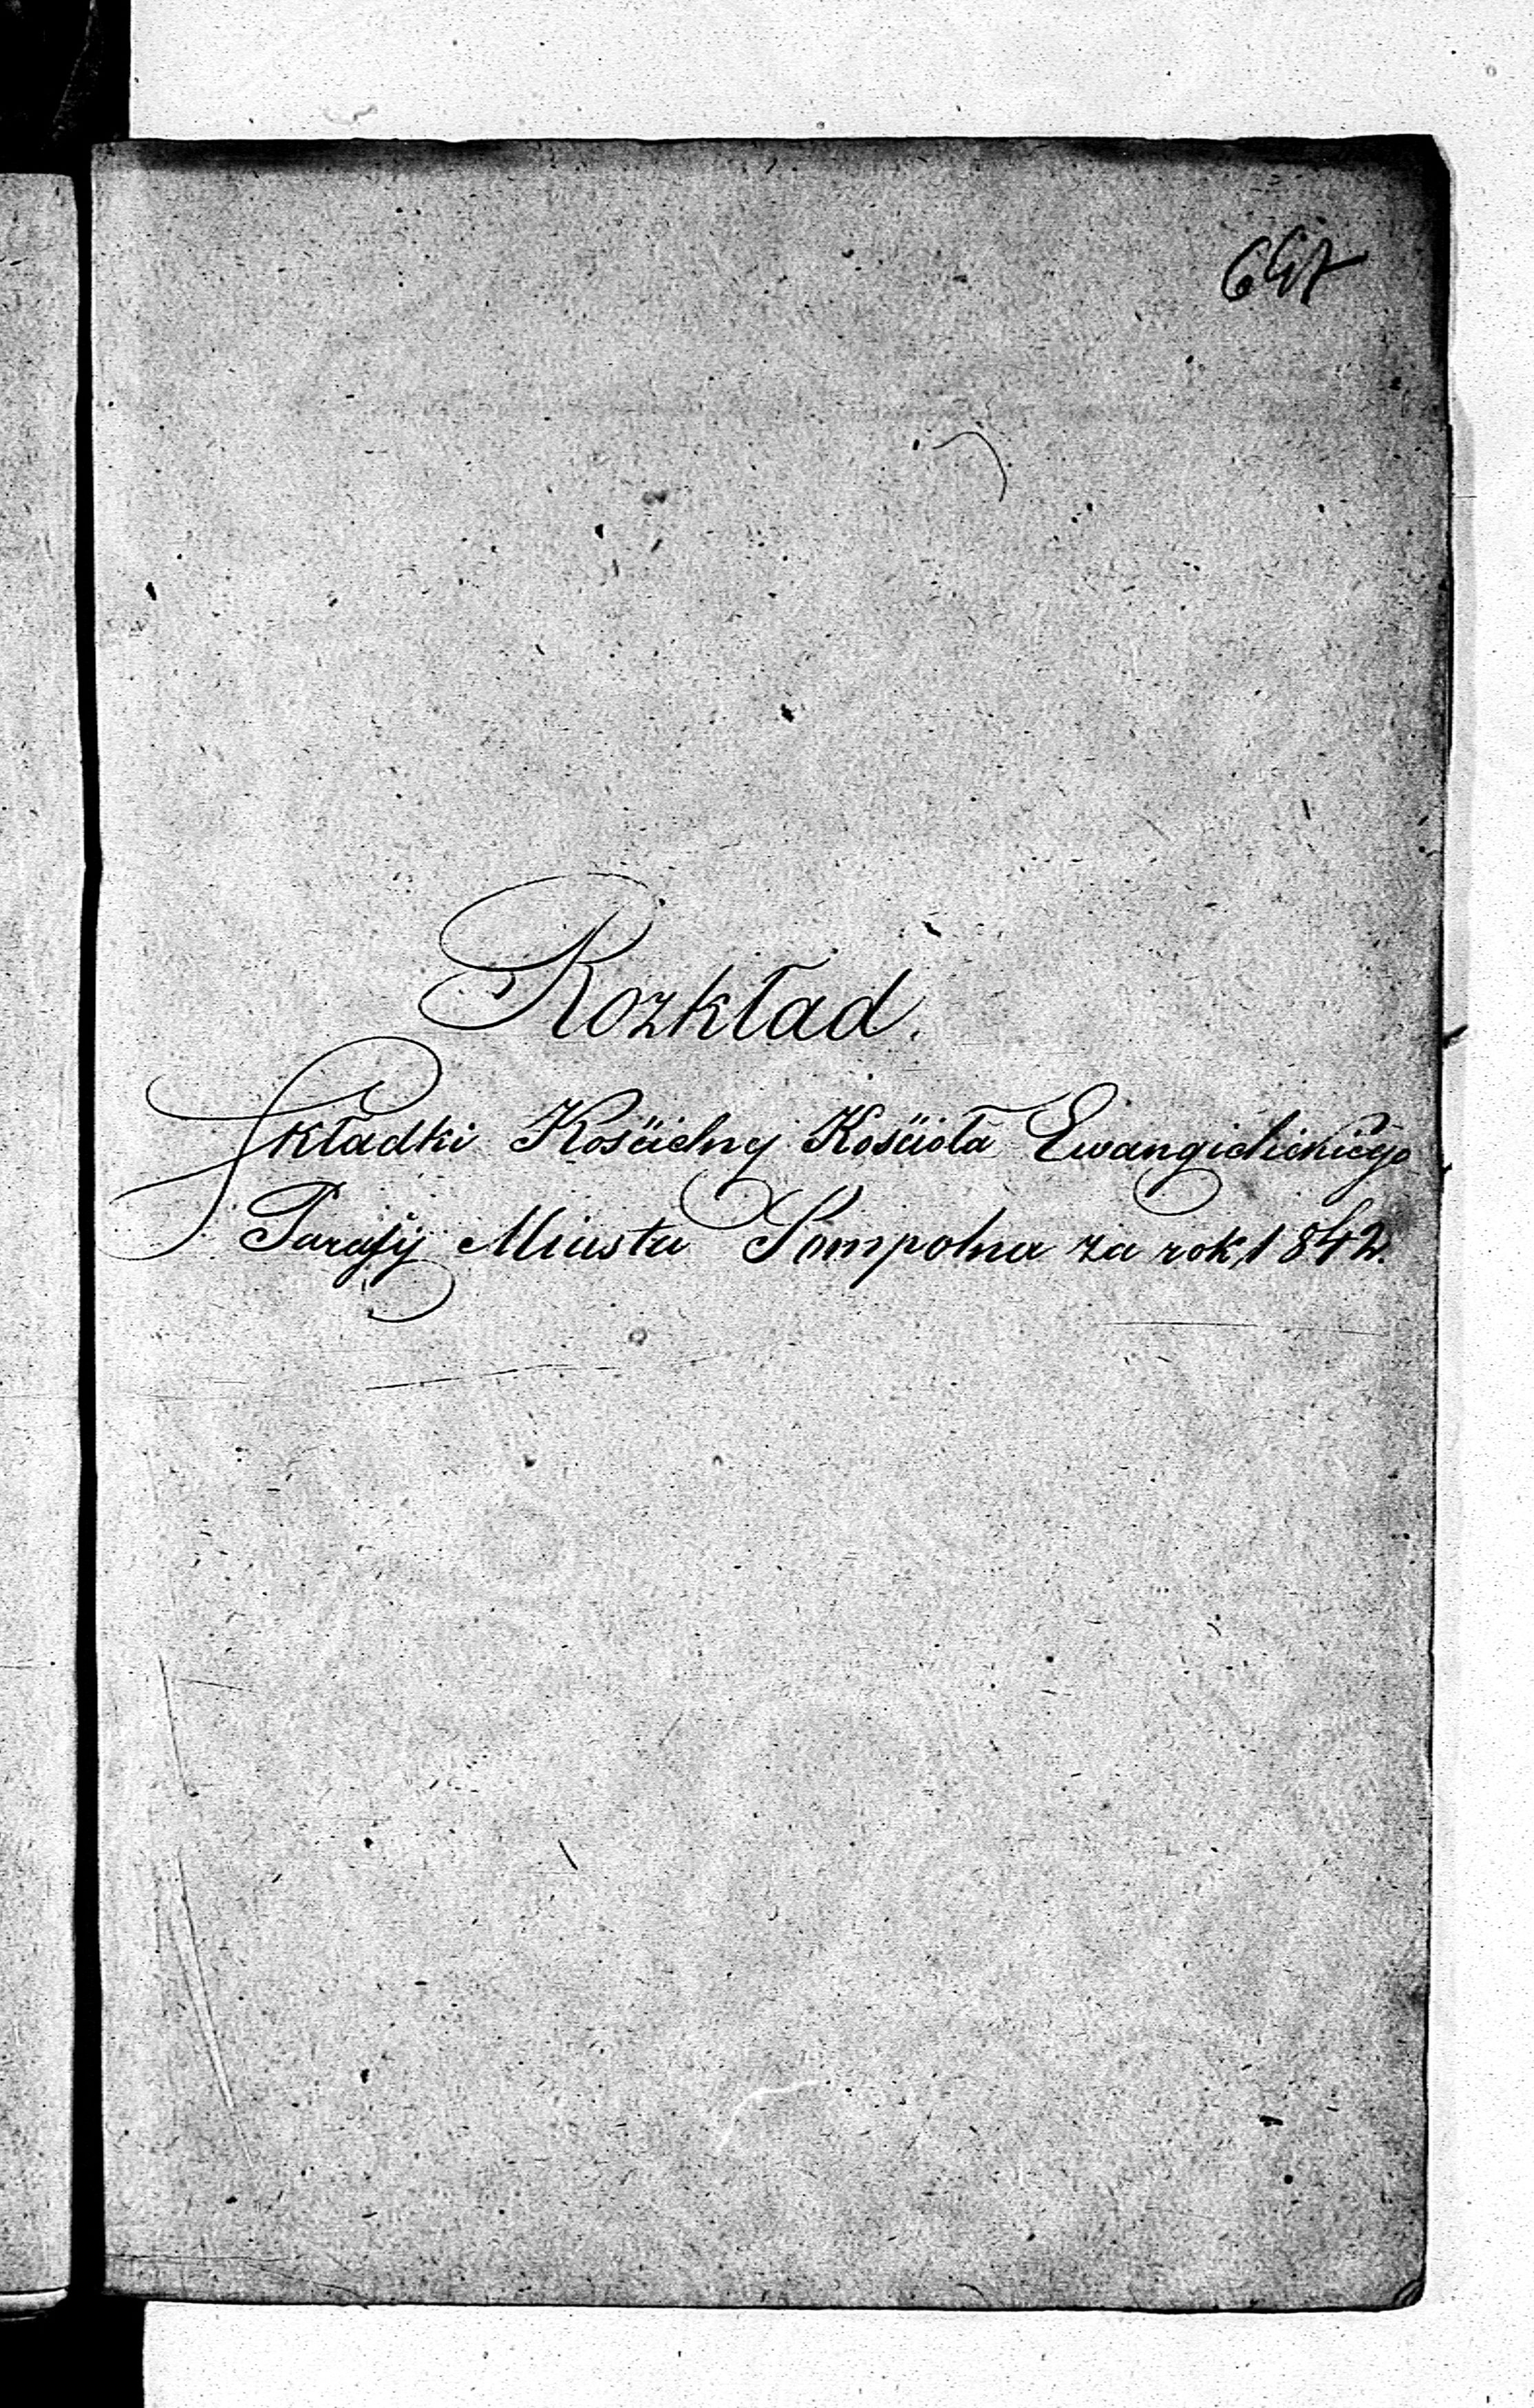 647
Rozkład.
Składki Kościelny Kościoła Ewangielickiego
Parafij Miasta Sompolna za rok 1842.